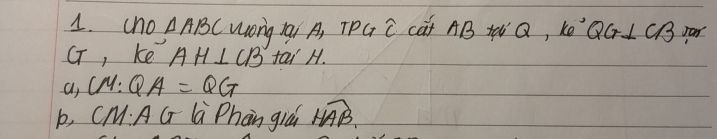 1. Cho ΔABC vuông tại A, TPG Ĉ cắt AB tại Q, kẻ QG⊥CB tại
G, kẻ AH⊥CB tại H.
a, CM: QA = QG
b, CM: AG là Phân giác HAB.